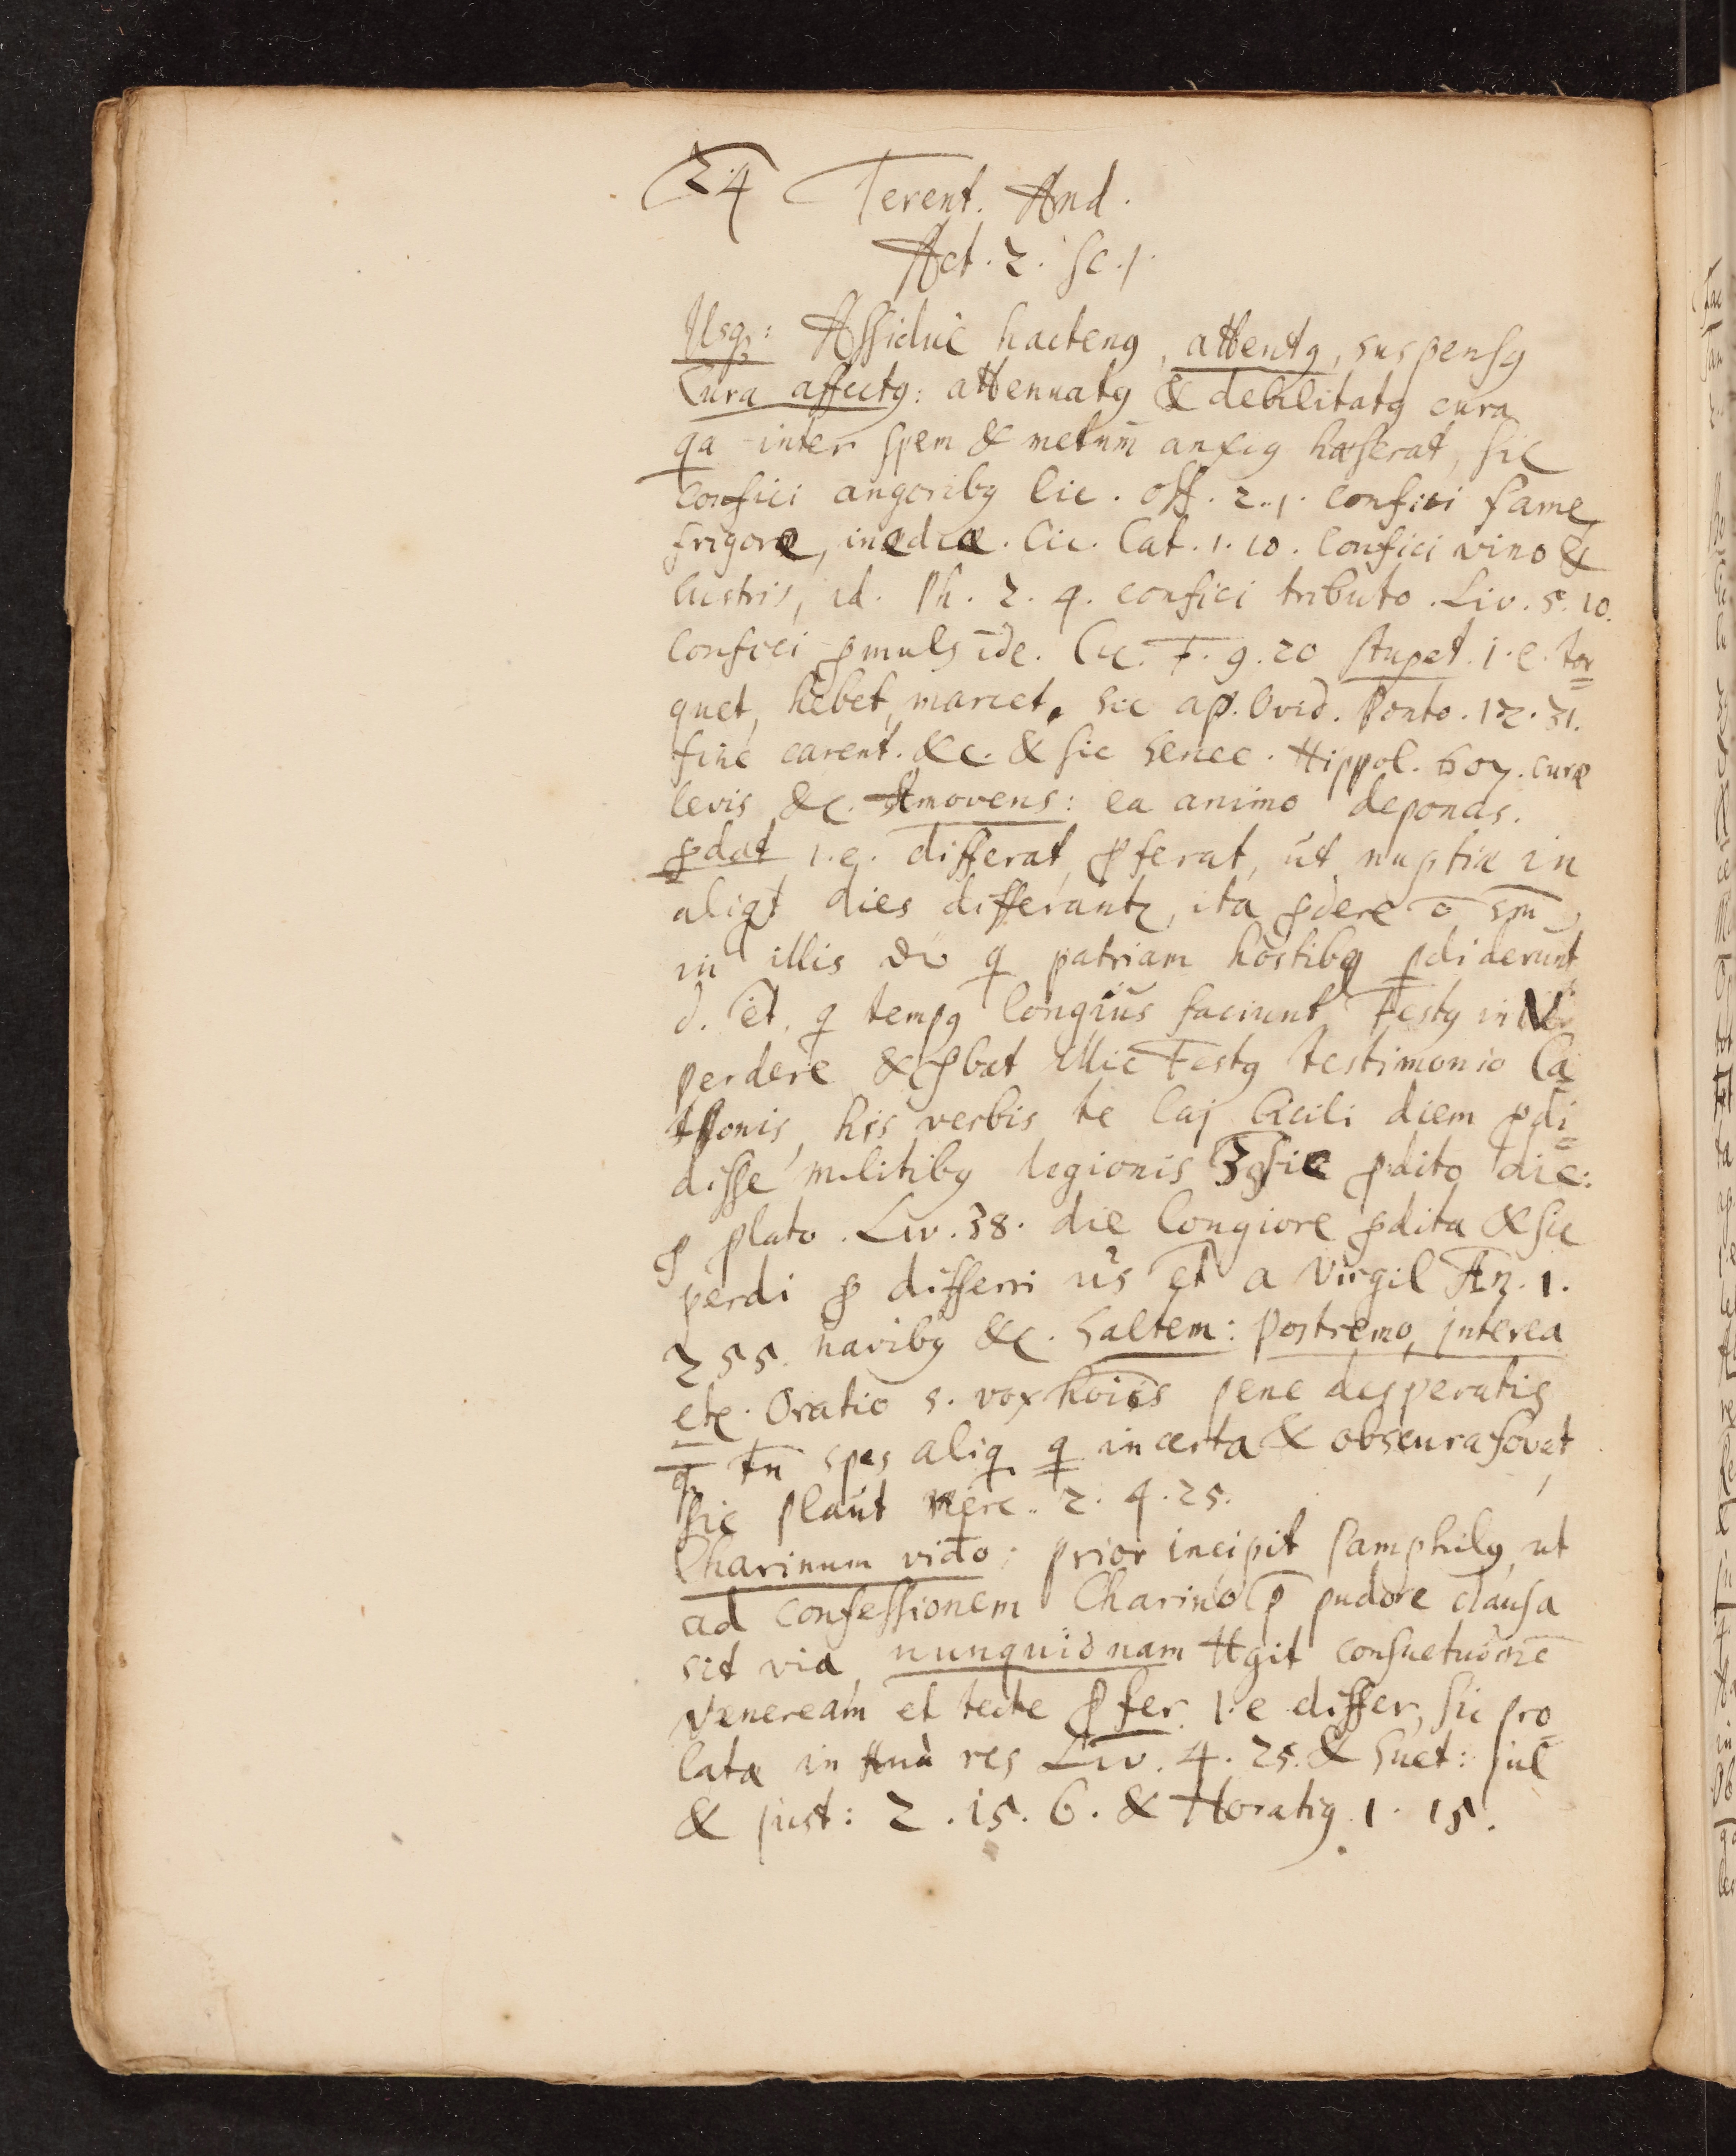 24 Terent. And.
Act. 2. Sc. 1.
Usq₃: Assidue hactenꝰ, attentꝰ, suspensꝰ
Cura affectꝰ: attenuatꝰ & debilitatꝰ cura
qa inter spem & metum anxiꝰ hæserat, sic
confici angoribꝰ Cic. Off. 2. 1. confici fame,
frigore, inedia. Cic. Cat. 1. 10. Confici vino &
lustris, id. Ph. 2. 4. confici tributo. Liv. 5. 10.
Confici ꝓmulside. Cic. F. 9. 20 stupet. i.e. tor=
quet, hebet, marcet, sic ap. Ovid. Ponto. 12. 31.
fine carent. &c. & sic Senec. Hippol. 607. curæ
levis &c. Amovens: ea animo deponas.
ꝓdat i.e. differat, ꝓferat, ut nuptiæ in
aliqt dies differantr, ita ꝓdere ē sm
in illis q patriam hostibꝰ ꝓdiderunt
d. et. q tempꝰ longius faciunt Festꝰ in V
perdere & ꝓbat illic Festꝰ testimonio Ca=
thonis, his verbis te Caj Cæcili diem ꝓdi=
disse militibꝰ legionis 3. sic ꝓdito die:
ꝓ ꝓlato. Liv. 38. die longiore ꝓdita & sic
perdi ꝓ differri us et a Virgil Æn. 1.
255. navibꝰ &c. Saltem: Postremo, interea
etc. Oratio s. vox hoiis pene desperatis
q tn spes aliq q incerta & obscura fovet
sic plaut Merc. 2. 4. 25.
Charinum video: prior incipit Pamphilꝰ, ut
ad confessionem Charino p pudore clausa
sit via nunquidnam ttgit consuetudnē
Veneream et tecte ꝓfer i.e differ, sic pro=
latæ in Anu res Liv. 4. 25. & Suet: Jul
& just: 2. 15. 6. & Horatiꝰ 1. 15.